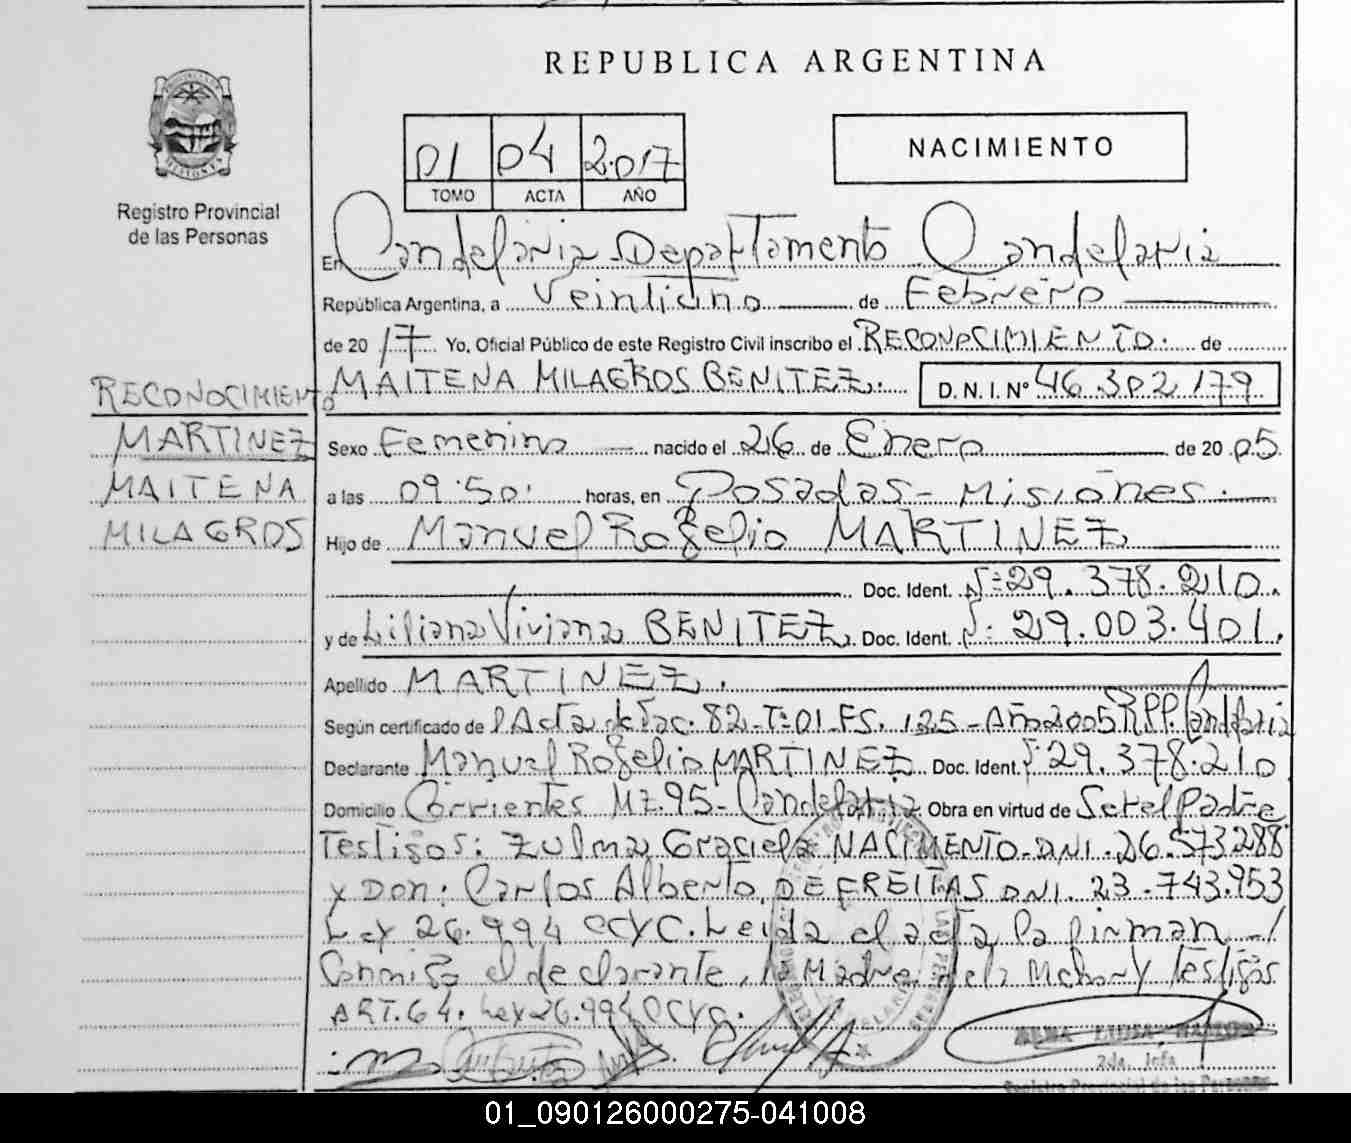 REPUBLICA ARGENTINA
Registro Provincial
de las Personas
01 04 2.017
TOMO ACTA AÑO
NACIMIENTO
En Candelaria Departamento Candelaria
República Argentina, a Veintiuno de Febrero
de 20 17 Yo, Oficial Público de este Registro Civil inscribo el RECONOCIMIENTO. de
MAITENA MILAGROS BENITEZ. D. N. I. N° 46.302.179
RECONOCIMIENTO
MARTINEZ
MAITENA
MILAGROS
Sexo Femenino nacido el 26 de Enero de 20 05
a las 09:50 horas, en Posadas - Misiones.
Hijo de Manuel Rogelio MARTINEZ
Doc. Ident. N°: 29.378.210.
y de Liliana Viviana BENITEZ. Doc. Ident. N°: 29.003.401.
Apellido MARTINEZ.
Según certificado de Acta de Nac. 82-T:01-FS. 125-Año 2005 R.P.P. Candelaria
Declarante Manuel Rogelio MARTINEZ Doc. Ident. 29.378.210
Domicilio Corrientes MZ.95- Candelaria Obra en virtud de Ser el Padre
Testigos: Zulma Graciela NACIMENTO-DNI.26.573.288
y Don: Carlos Alberto DE FREITAS DNI. 23.743.953
Ley 26.994 CCYC. Leida el acta, la firman
Conmigo el declarante, la Madre de la Menor y Testigos
ART.64. Ley 26.994 CCYC.
2da. Jefa
Registro Provincial de las Personas
01_090126000275-041008